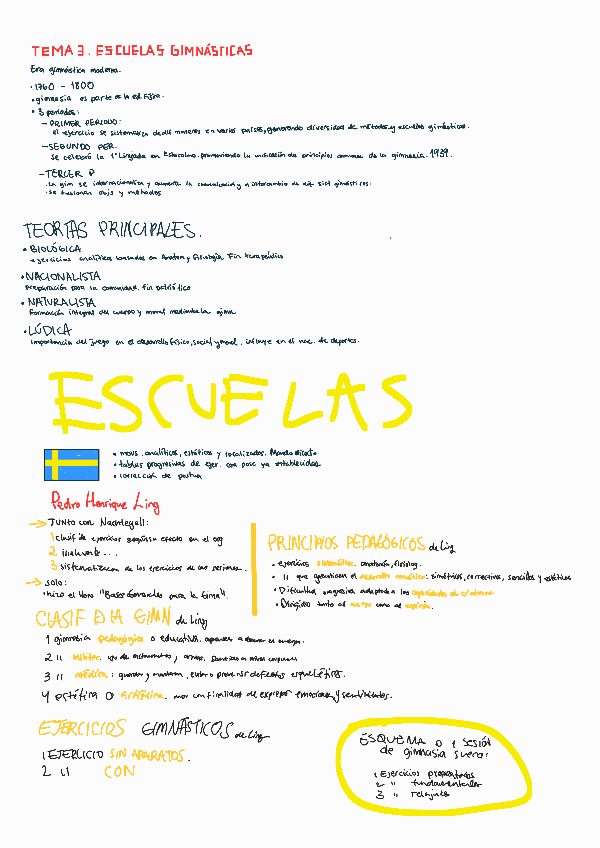 TEMA 3. ESCUELAS GIMNÁSTICAS
Era gimnástica moderna.
• 1760 - 1800
• gimnasia es parte de la ed. física.
• 3 periodos:
— PRIMER PERIODO:
el ejercicio se sistematiza de dif maneras en varios países, generando diversidad de métodos y escuelas gimnásticas.
— SEGUNDO PER.
Se celebró la 1ª Lingiada en Estocolmo. promoviendo la unificación de principios comunes de la gimnasia. 1939.
— TERCER P
• La gim se internacionaliza y aumenta la comunicación y el intercambio de dif. sist gimásticos.
• Se fusionan objs y métodos
TEORÍAS PRINCIPALES.
• BIOLÓGICA
→ ejercicios analíticos basados en Anatom y Fisiología. Fin terapéutico
• NACIONALISTA
Preparación para la comunidad. Fin patriótico
• NATURALISTA
Formación integral del cuerpo y moral mediante la gimn.
• LÚDICA
Importancia del juego en el desarrollo físico, social y moral. influye en el nac. de deportes.
ESCUELAS
• movs. analíticos, estáticos y localizados. Mando directo
• tablas progresivas de ejer. con posc ya establecidas
• corrección de postura
Pedro Henrique Ling
→ JUNTO con Nachtegall:
1 clasif de ejercicios según su efecto en el org
2 instrumento ...
3 sistematización de los ejercicios de las sesiones.
→ solo:
• hizo el libro "Bases Generales para la Gimn".
PRINCIPIOS PEDAGÓGICOS de Ling
• ejercicios sistemáticos. anatomía, fisiolog.
• 11 que garanticen el desarrollo armónico: simétricos, correctivos, sencillos y estéticos
• Dificultad progresiva adaptada a las capacidades de c/ alumno
• Dirigido tanto al cuerpo como al espíritu.
CLASIF D LA GIMN de Ling
1 gimnasia pedagógica o educativa. aprender a dominar el cuerpo.
2 11 Militar. uso de instrumentos y armas.
3 11 médica: guardar y mantener, evitar o prevenir defectos esqueléticos.
4 estética o artística. mov con finalidad de expresar emociones y sentimientos.
EJERCICIOS GIMNÁSTICOS de Ling
1 EJERCICIO SIN APARATOS.
2 11 CON
ESQUEMA D 1 SESIÓN
de gimnasia sueca:
1 Ejercicios preparatorios
2 " fundamentales
3 " relajantes